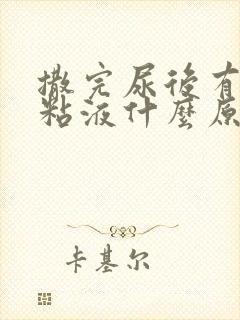 撒完尿後有
粘液什麼原
卡基尔